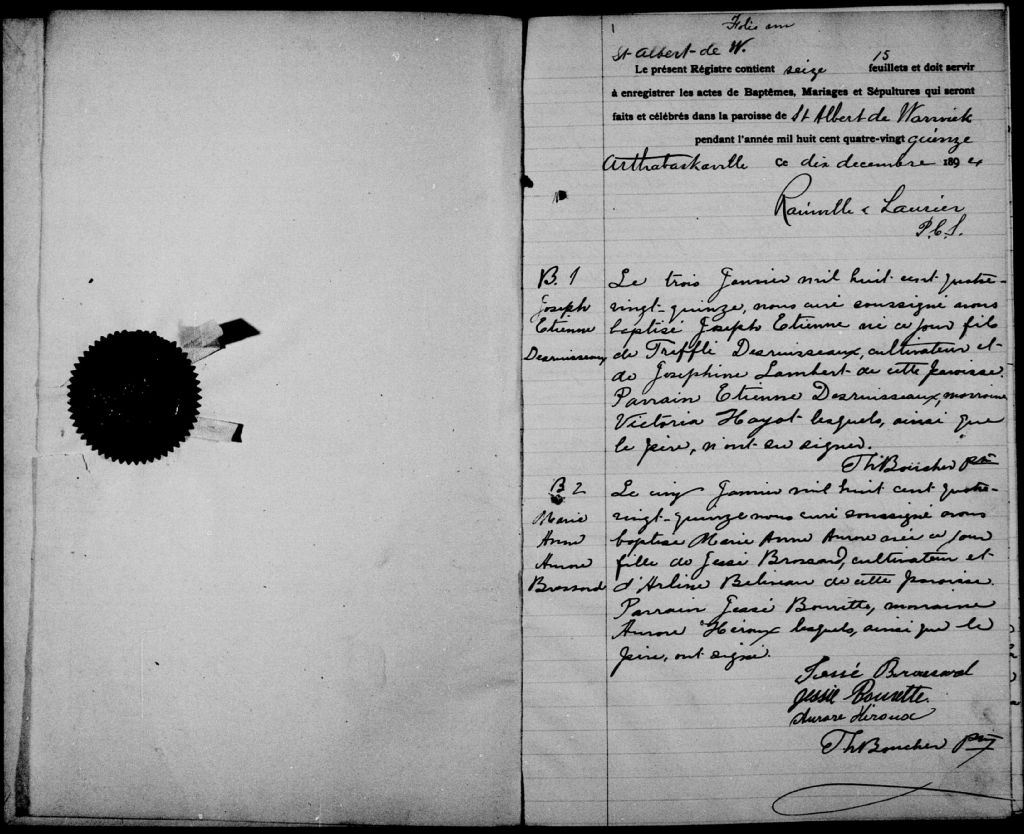 Folio un
St Albert de W.
Le présent Régistre contient seize 15 feuillets et doit servir
à enregistrer les actes de Baptêmes, Mariages et Sépultures qui seront
faits et célébrés dans la paroisse de St Albert de Warwick
pendant l'année mil huit cent quatre-vingt quinze
Arthabaskaville Ce dix decembre 1894
Rainville & Laurier
P.C.S.
B. 1
Joseph
Etienne
Desruisseaux
Le trois Janvier mil huit cent quatre-
vingt-quinze, nous curé soussigné avons
baptisé Joseph Etienne né ce jour fils
de Trefflé Desruisseaux, cultivateur et
de Josephine Lambert de cette paroisse.
Parrain Etienne Desruisseaux, marraine
Victoria Hayot lesquels, ainsi que
le père, n'ont su signer.
Th Boucher ptre
B 2
Marie
Anne
Aurore
Brossard
Le cinq Janvier mil huit cent quatre-
vingt-quinze nous curé soussigné avons
baptisé Marie Anne Aurore née ce jour
fille de Jessé Brossard, cultivateur et
d'Arline Beliveau de cette paroisse.
Parrain Jessé Bourette, marraine
Aurore Héroux lesquels, ainsi que le
père, ont signé.
Jessé Brossard
Jessie Bourette.
Aurore Héroux
Th Boucher ptre